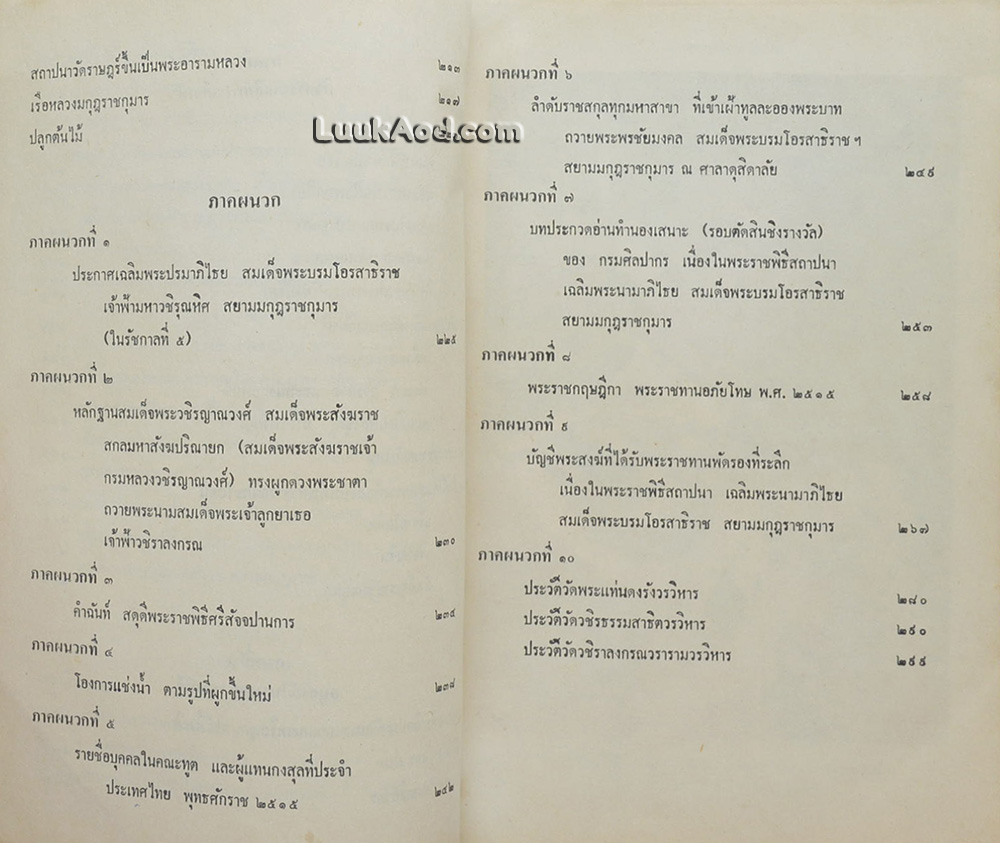 สถาปนาวัดราษฎร์ขึ้นเป็นพระอารามหลวง ๒๑๓
เรือหลวงมกุฎราชกุมาร ๒๑๗
ปลูกต้นไม้
LuukAod.com
ภาคผนวก
ภาคผนวกที่ ๑
ประกาศเฉลิมพระปรมาภิไธย สมเด็จพระบรมโอรสาธิราช
เจ้าฟ้ามหาวชิรุณหิศ สยามมกุฎราชกุมาร
(ในรัชกาลที่ ๕) ๒๒๙
ภาคผนวกที่ ๒
หลักฐานสมเด็จพระวชิรญาณวงศ์ สมเด็จพระสังฆราช
สกลมหาสังฆปริณายก (สมเด็จพระสังฆราชเจ้า
กรมหลวงวชิรญาณวงศ์) ทรงผูกดวงพระชาตา
ถวายพระนามสมเด็จพระเจ้าลูกยาเธอ
เจ้าฟ้าวชิราลงกรณ ๒๓๐
ภาคผนวกที่ ๓
คำฉันท์ สดุดีพระราชพิธีศรีสัจจปานการ ๒๓๕
ภาคผนวกที่ ๔
โองการแช่งน้ำ ตามรูปที่ผูกขึ้นใหม่ ๒๓๘
ภาคผนวกที่ ๕
รายชื่อบุคคลในคณะทูต และผู้แทนกงสุลที่ประจำ
ประเทศไทย พุทธศักราช ๒๕๑๕ ๒๔๒
ภาคผนวกที่ ๖
ลำดับราชสกุลทุกมหาสาขา ที่เข้าเฝ้าทูลละอองพระบาท
ถวายพระพรชัยมงคล สมเด็จพระบรมโอรสาธิราช ฯ
สยามมกุฎราชกุมาร ณ ศาลาดุสิดาลัย ๒๔๙
ภาคผนวกที่ ๗
บทประกวดอ่านทำนองเสนาะ (รอบตัดสินชิงรางวัล)
ของ กรมศิลปากร เนื่องในพระราชพิธีสถาปนา
เฉลิมพระนามาภิไธย สมเด็จพระบรมโอรสาธิราช
สยามมกุฎราชกุมาร ๒๕๓
ภาคผนวกที่ ๘
พระราชกฤษฎีกา พระราชทานอภัยโทษ พ.ศ. ๒๕๑๕ ๒๕๘
ภาคผนวกที่ ๙
บัญชีพระสงฆ์ที่ได้รับพระราชทานพัดรองที่ระลึก
เนื่องในพระราชพิธีสถาปนา เฉลิมพระนามาภิไธย
สมเด็จพระบรมโอรสาธิราช สยามมกุฎราชกุมาร ๒๖๗
ภาคผนวกที่ ๑๐
ประวัติวัดพระแท่นดงรังวรวิหาร ๒๘๐
ประวัติวัดวชิรธรรมสาธิตวรวิหาร ๒๙๐
ประวัติวัดวชิราลงกรณวรารามวรวิหาร ๒๙๙